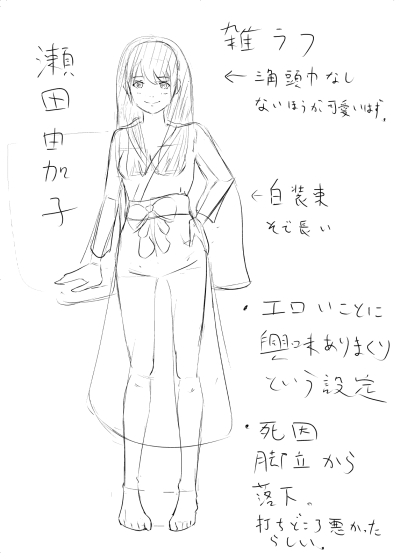 瀬田由加子
雑ラフ
← 三角頭巾なし
ないほうが可愛いはず。
← 白装束
そで長い
・エロいことに
興味ありまくり
という設定
・死因
脚立から
落下。
打ちどころ悪かった
らしい。